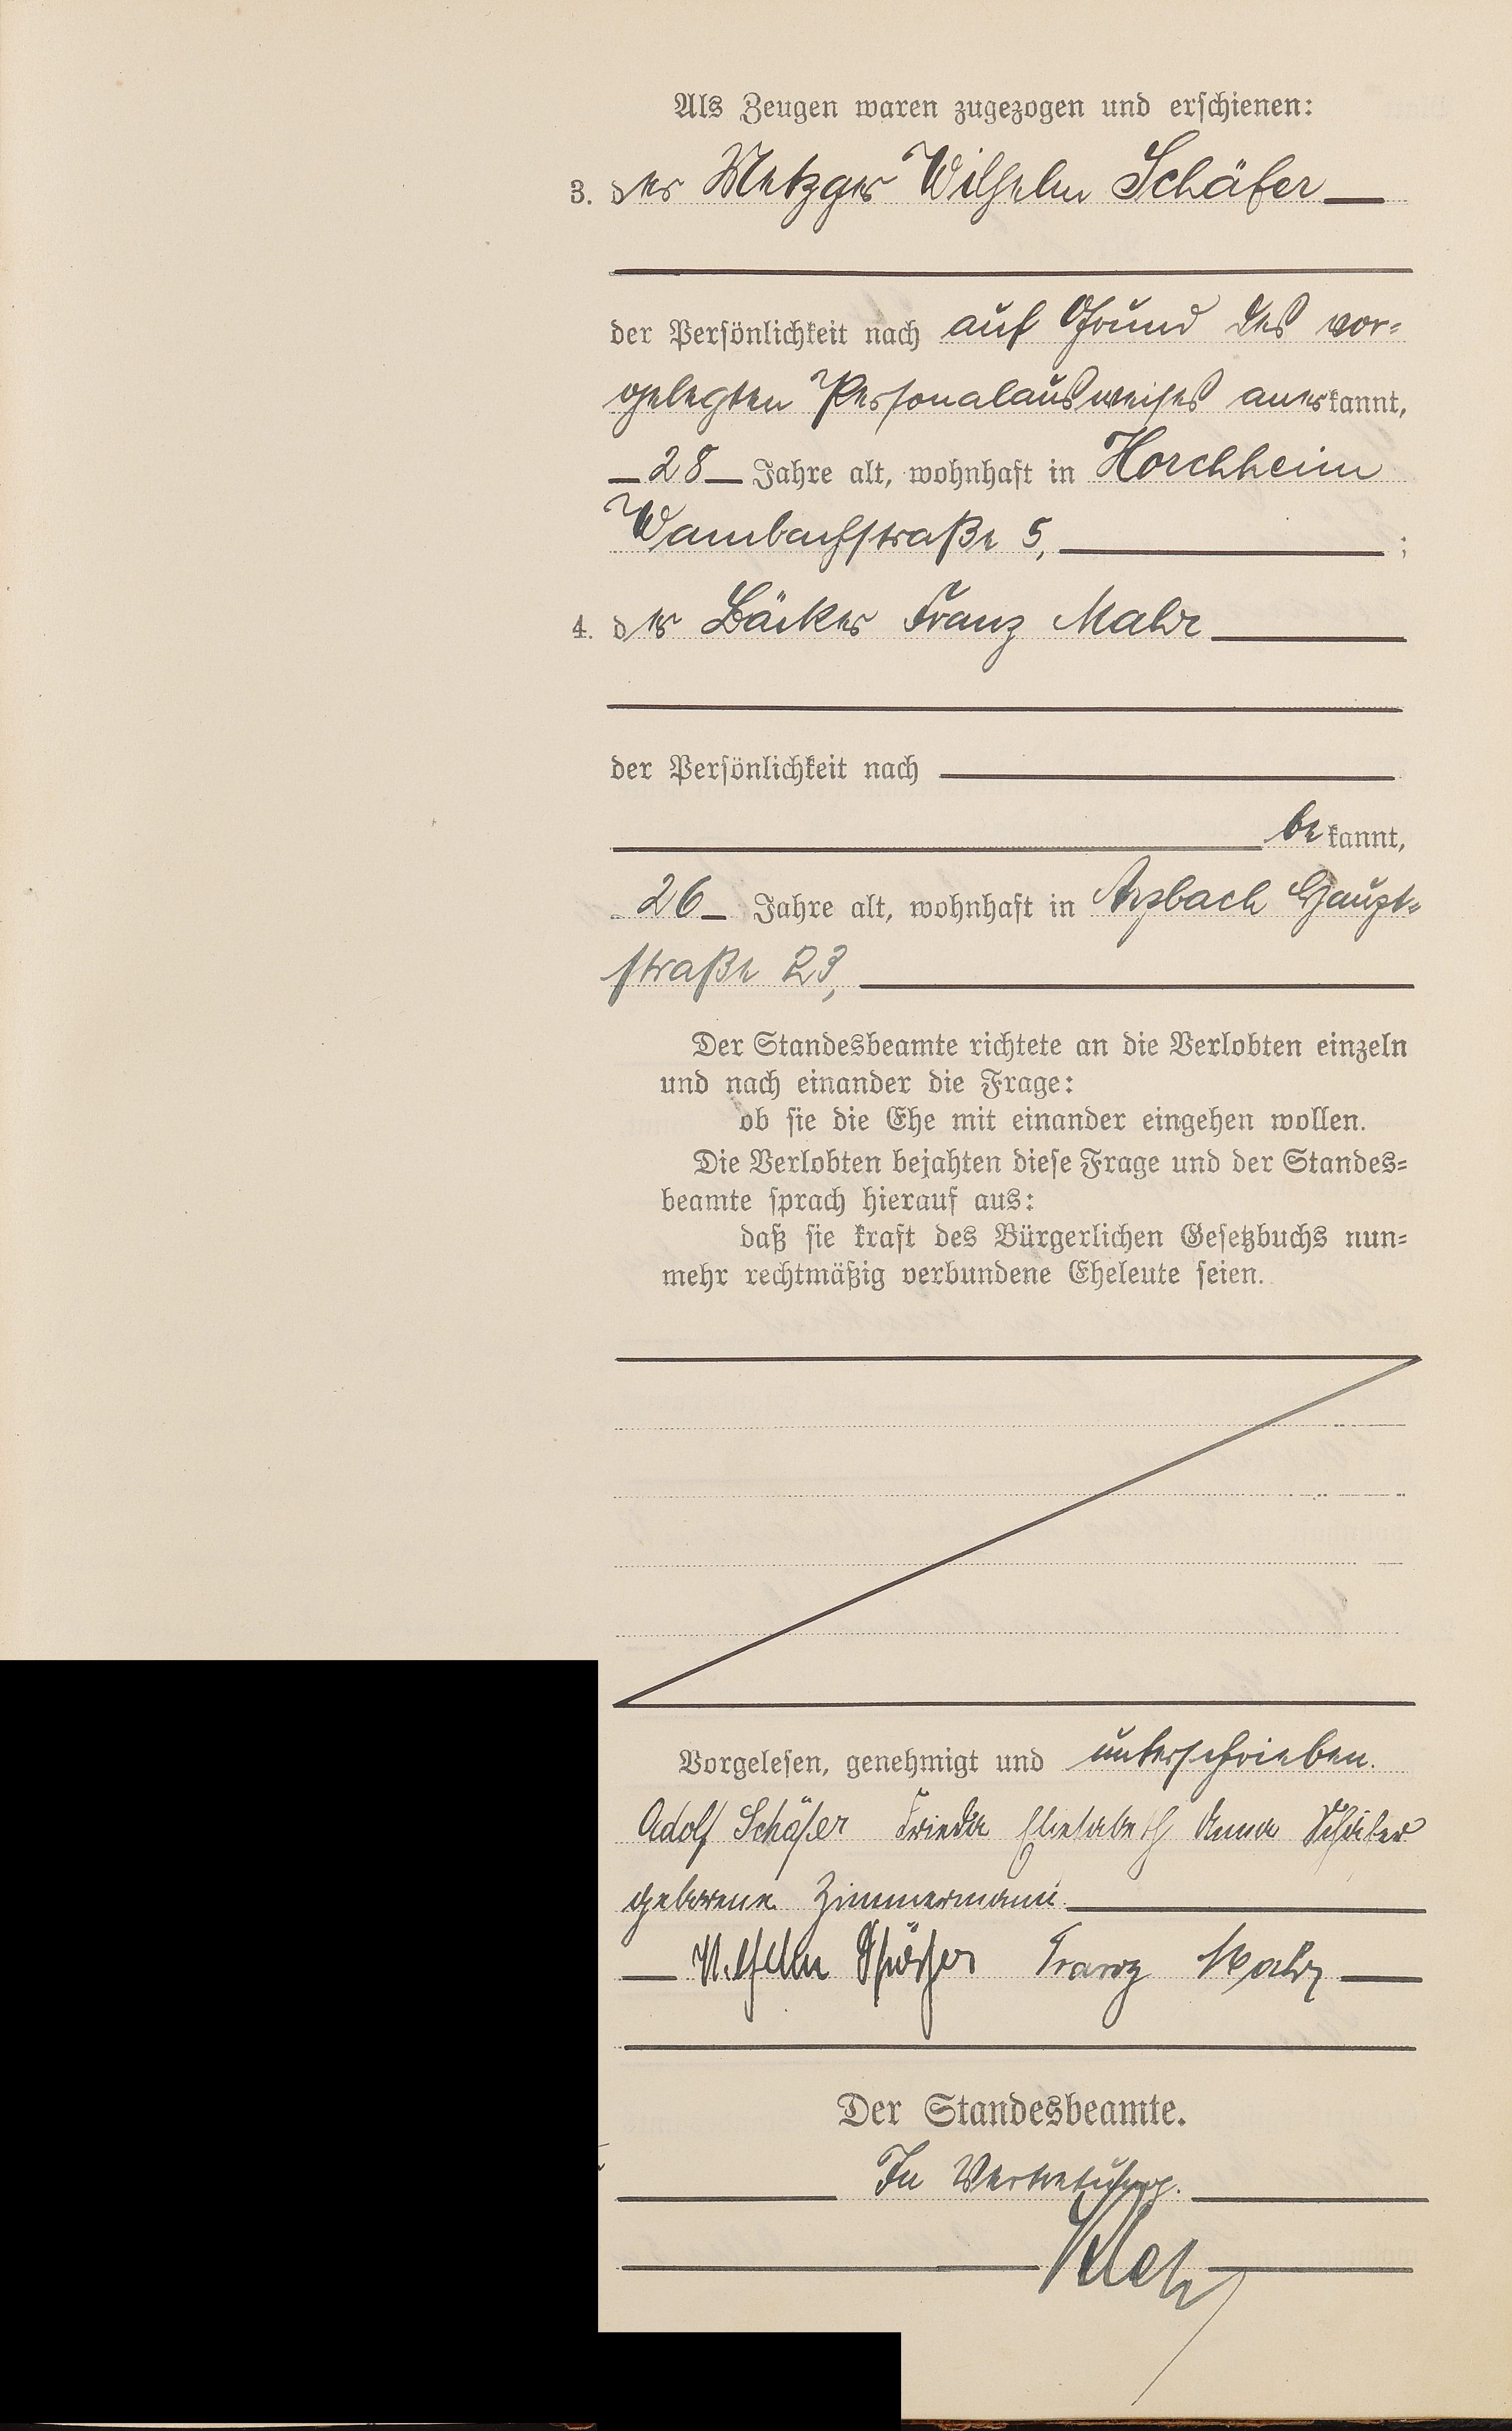 Als Zeugen waren zugezogen und erschienen:
3. der Metzger Wilhelm Schäfer
der Persönlichkeit nach auf Grund des vor-
gelegten Personalausweises anerkannt,
28 Jahre alt, wohnhaft in Horchheim
Wambachstraße 5, ;
4. der Bäcker Franz Mahr
der Persönlichkeit nach
bekannt,
26 Jahre alt, wohnhaft in Arzbach Haupt-
straße 23,
Der Standesbeamte richtete an die Verlobten einzeln
und nach einander die Frage:
ob sie die Ehe mit einander eingehen wollen.
Die Verlobten bejahten diese Frage und der Standes-
beamte sprach hierauf aus:
daß sie kraft des Bürgerlichen Gesetzbuchs nun-
mehr rechtmäßig verbundene Eheleute seien.
Vorgelesen, genehmigt und unterschrieben.
Adolf Schäfer Frieda Elisabeth Anna Schäfer
geborene Zimmermann
Wilhelm Schäfer Franz
Der Standesbeamte.
In Vertretung.